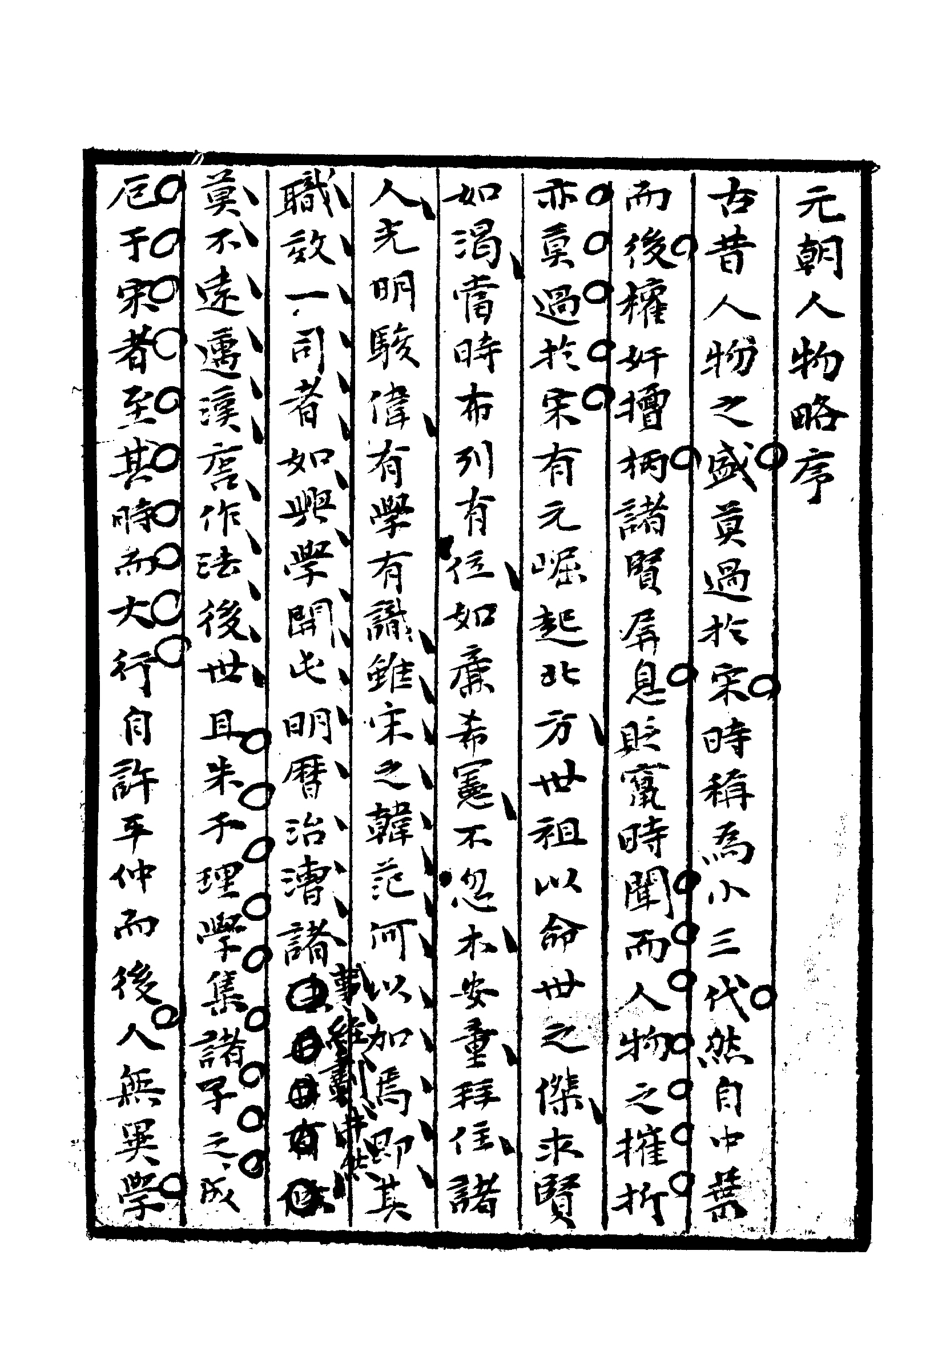 元朝人物略序
古昔人物之盛莫過於宋時稱為小三代然自中葉
而後權奸擅柄諸賢屏息貶竄時聞而人物之摧折
亦莫過於宋有元崛起北方世祖以命世之傑求賢
如渴當時布列有位如廉希憲不忽木安童拜住諸
人光明駿偉有學有識雖宋之韓范何以加焉即其
職效一司者如興學開屯明曆治漕諸事經畫井然
莫不遠邁漢唐作法後世且朱子理學集諸子之成
厄于宋者至其時而大行自許平仲而後人無異學